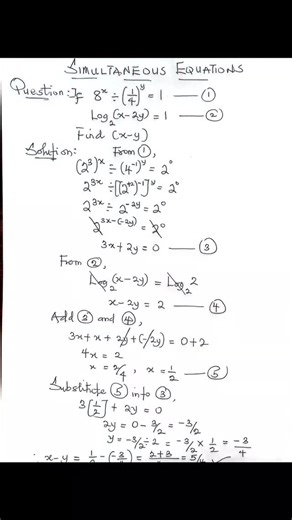 SIMULTANEOUS EQUATIONS
Question: If 8ˣ ÷ (1/4)ʸ = 1 —— ①
Log₂(x-2y) = 1 —— ②
Find (x-y)
Solution: From ①,
(2³)ˣ ÷ (4⁻¹)ʸ = 2⁰
2³ˣ ÷ [(2⁺²)⁻¹]ʸ = 2⁰
2³ˣ ÷ 2⁻²ʸ = 2⁰
2³ˣ⁻⁽⁻²ʸ⁾ = 2⁰
3x + 2y = 0 —— ③
From ②,
Log₂(x-2y) = Log₂2
x-2y = 2 —— ④
Add ③ and ④,
3x + x + 2y + (-2y) = 0+2
4x = 2
x = 2/4, x = 1/2 —— ⑤
Substitute ⑤ into ③,
3[1/2] + 2y = 0
2y = 0 - 3/2 = -3/2
y = -3/2 ÷ 2 = -3/2 × 1/2 = -3/4
∴ x-y = 1/2 - (-3/ = 2+3/ = 5/4